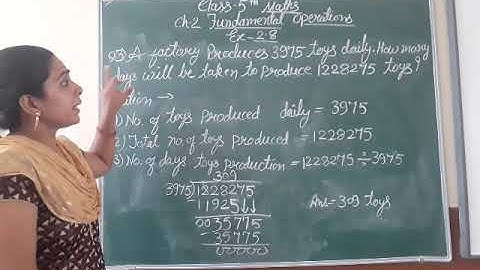 Class-5th Maths
Ch.2 Fundamental Operations
Ex-2.8
Q3) A factory produces 3975 toys daily. How many
days will be taken to produce 1228275 toys?
→
1) No. of toys produced daily = 3975
2) Total no. of toys produced = 1228275
3) No. of days toys production = 1228275 ÷ 3975
309
3975) 1228275
- 11925↓↓
0035775
35775
00000
Ans = 309 toys